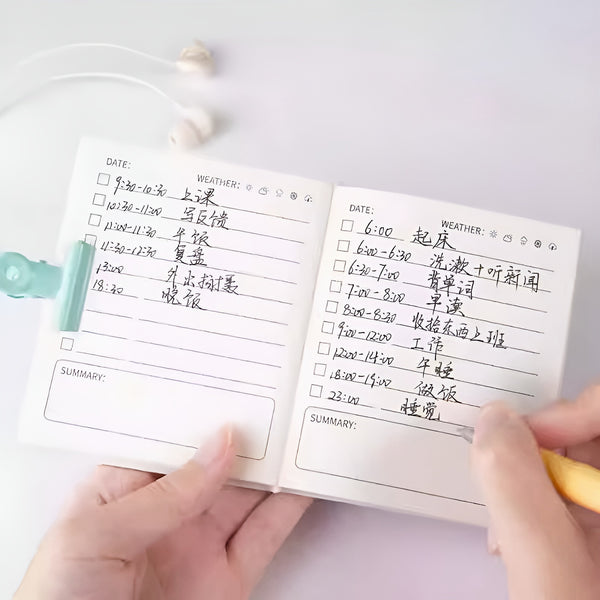 DATE:
WEATHER:
9:30-10:30 上课
10:30-11:00 写反馈
11:00-11:30 午饭
11:30-12:30 复盘
13:00 外出
18:30 晚饭
SUMMARY:
DATE:
WEATHER:
6:00 起床
6:00-6:30 洗漱+听新闻
6:30-7:00 背单词
7:00-8:00 早读
8:00-8:30 收拾东西上班
9:00-12:00 工作
12:00-14:00 午睡
18:00-19:00 做饭
23:00 睡觉
SUMMARY: